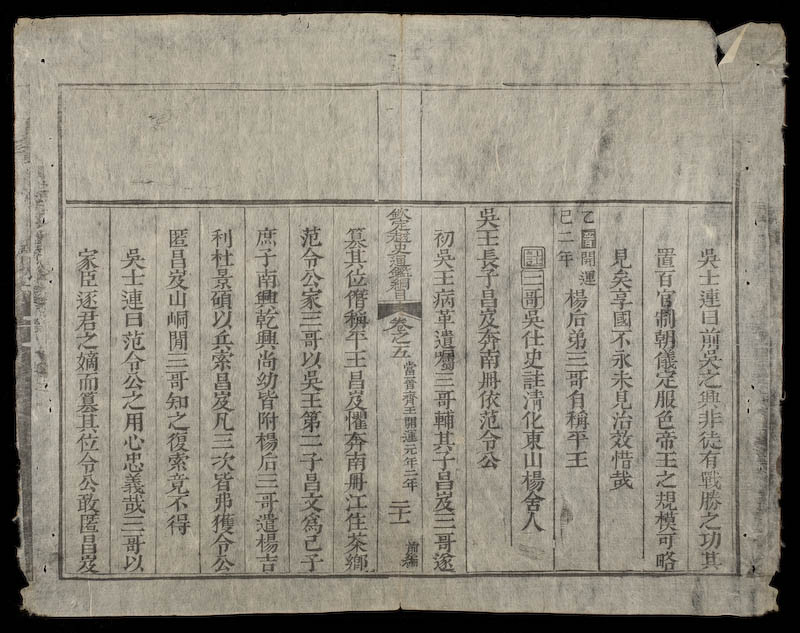 吳士連曰前吳之興非徒有戰勝之功其
置百官制朝儀定服色帝王之規模可略
見矣享國不永未見治效惜哉
乙巳 晉開運二年 楊后弟三哥自稱平王
註三哥吳仕史註清化東山楊舍人
吳王長子昌岌奔南册依范令公
初吳王病革遺囑三哥輔其子昌岌三哥遂
欽定越史通鑑綱目 卷之五 當晉齊王開運元年二年 二十一 前編
篡其位僭稱平王昌岌懼奔南册江住茶鄉
范令公家三哥以吳王第二子昌文爲己子
庶子南興乾興尚幼皆附楊后三哥遣楊吉
利杜景碩以兵索昌岌凡三次皆弗獲令公
匿昌岌山峒間三哥知之復索竟不得
吳士連曰范令公之用心忠義哉三哥以
家臣逐君之嫡而篡其位令公敢匿昌岌